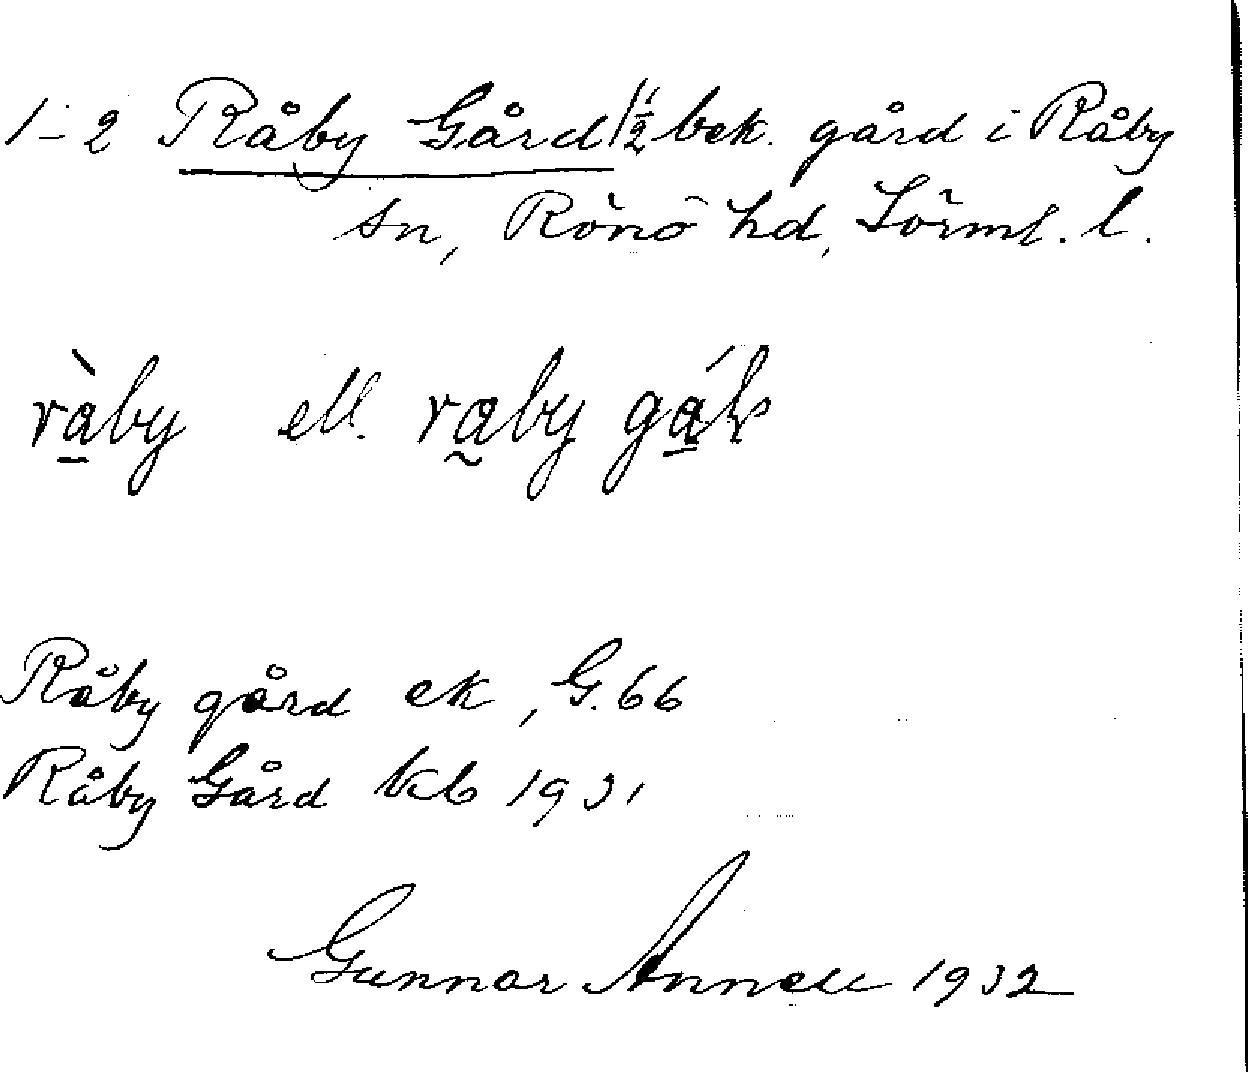 1-2 Råby Gård 1/2 bek. gård i Råby
sn, Rönö hd, Sörml. l.
ràby ell. raby
Råby gård ek, G. 66
Råby Gård kb 1931
Gunnar Annell 1932